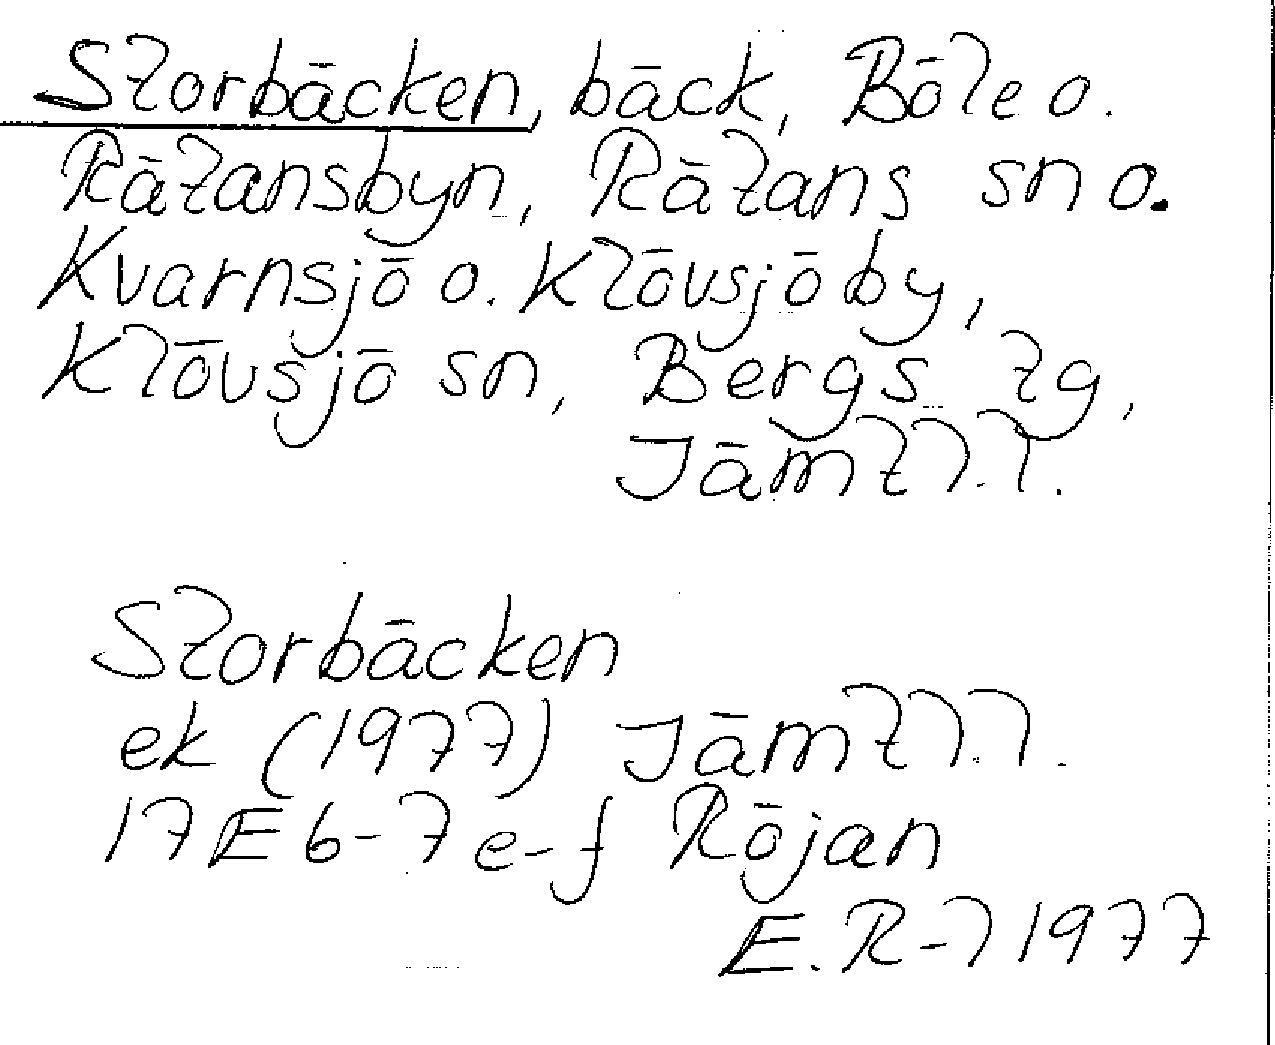 Storbäcken, bäck, Böle o.
Rätansbyn, Rätans sn o.
Kvarnsjö o. Klövsjö by,
Klövsjö sn, Bergs tg,
Jämtl. l.
Storbäcken
ek (1977) Jämtl. l.
17E 6-7 e-f Röjan
E. R-l 1977